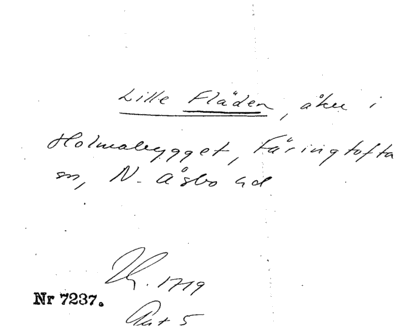 Lille Fläden, åker i
Holmabygget, Färingtofta
sn, N. Åsbo hd
1719
Akt 5
Nr 7237.